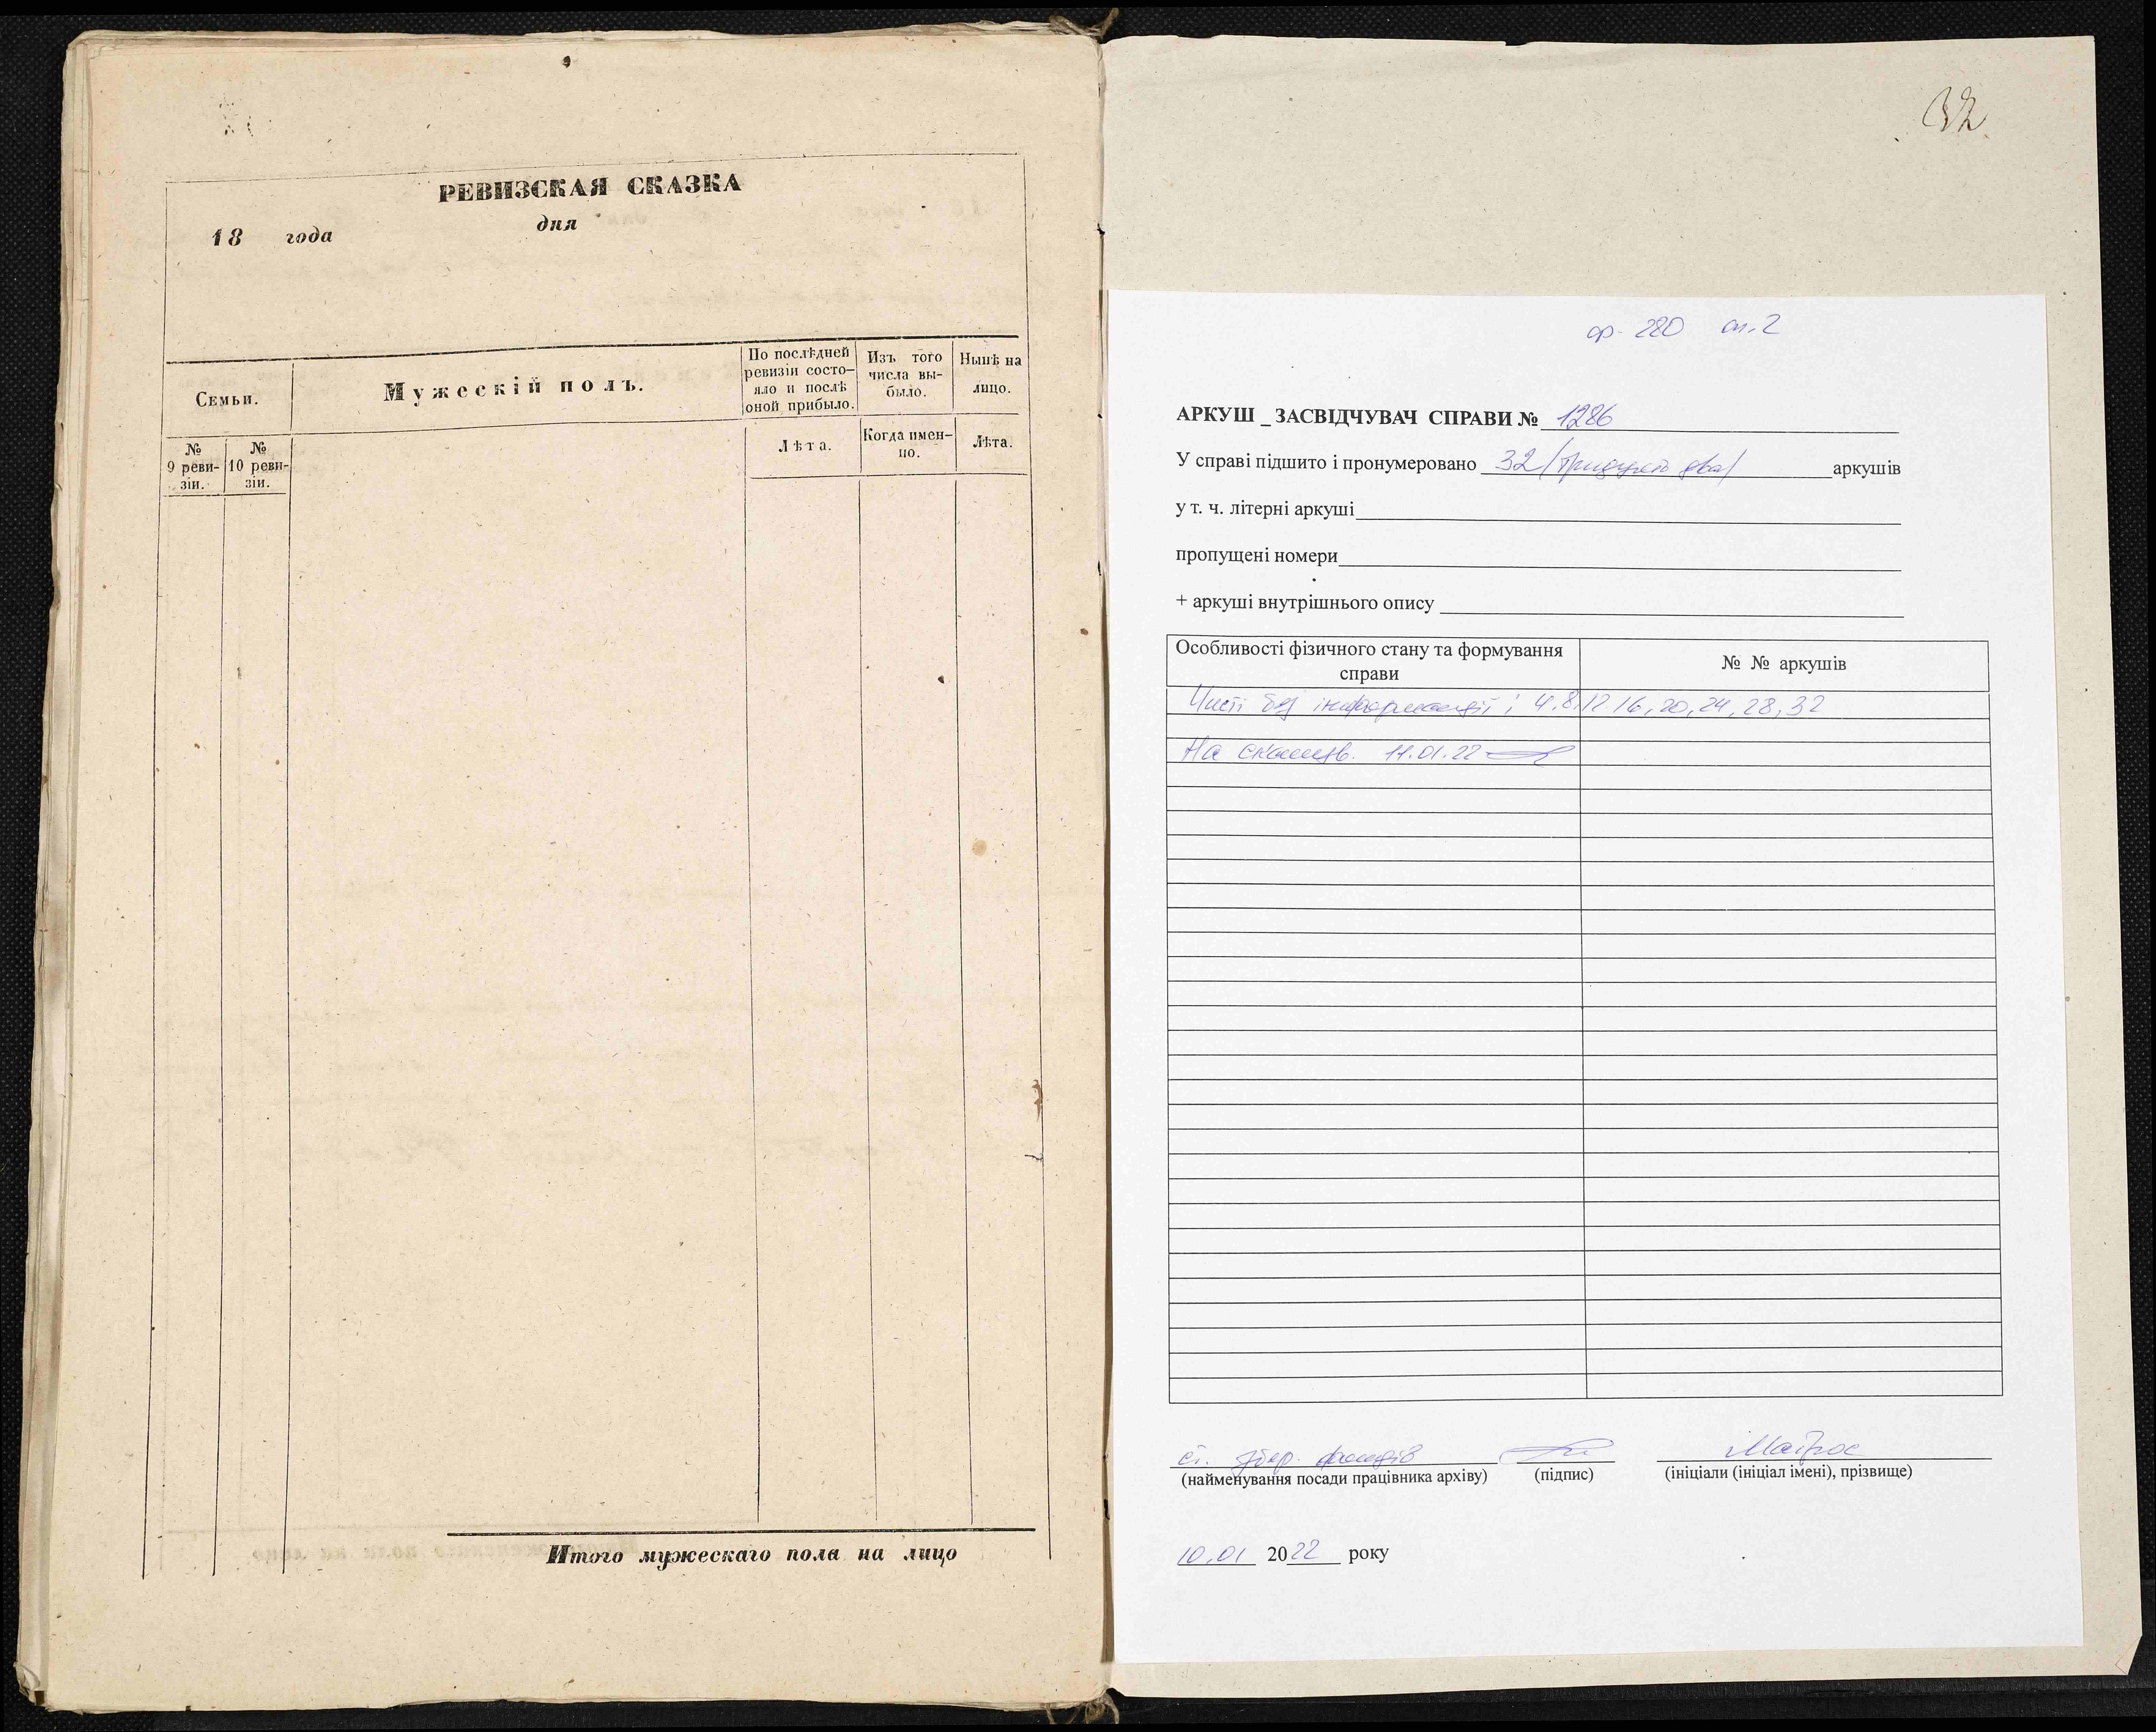 РЕВИЗСКАЯ СКАЗКА
дня
18 года
Семьи.
Мужескій полъ.
По послѣдней
ревизіи состо-
яло и послѣ
оной прибыло.
Изъ того
числа вы-
было.
Нынѣ на
лицо.
№
9 реви-
зіи.
№
10 реви-
зіи.
Лѣта.
Когда имен-
но.
Лѣта.
Итого мужескаго пола на лицо
32
ф. 280 оп. 2
АРКУШ _ ЗАСВІДЧУВАЧ СПРАВИ № 1286
У справі підшито і пронумеровано 32 /тридцять два/ аркушів
у т. ч. літерні аркуші
пропущені номери
+ аркуші внутрішнього опису
Особливості фізичного стану та формування
справи
№ № аркушів
Чисті без інформації: 4, 8, 12 16, 20, 24, 28, 32
На сканув. 11.01.22
ст. збер. фондів
(найменування посади працівника архіву) (підпис) (ініціали (ініціал імені), прізвище)
10.01 2022 року